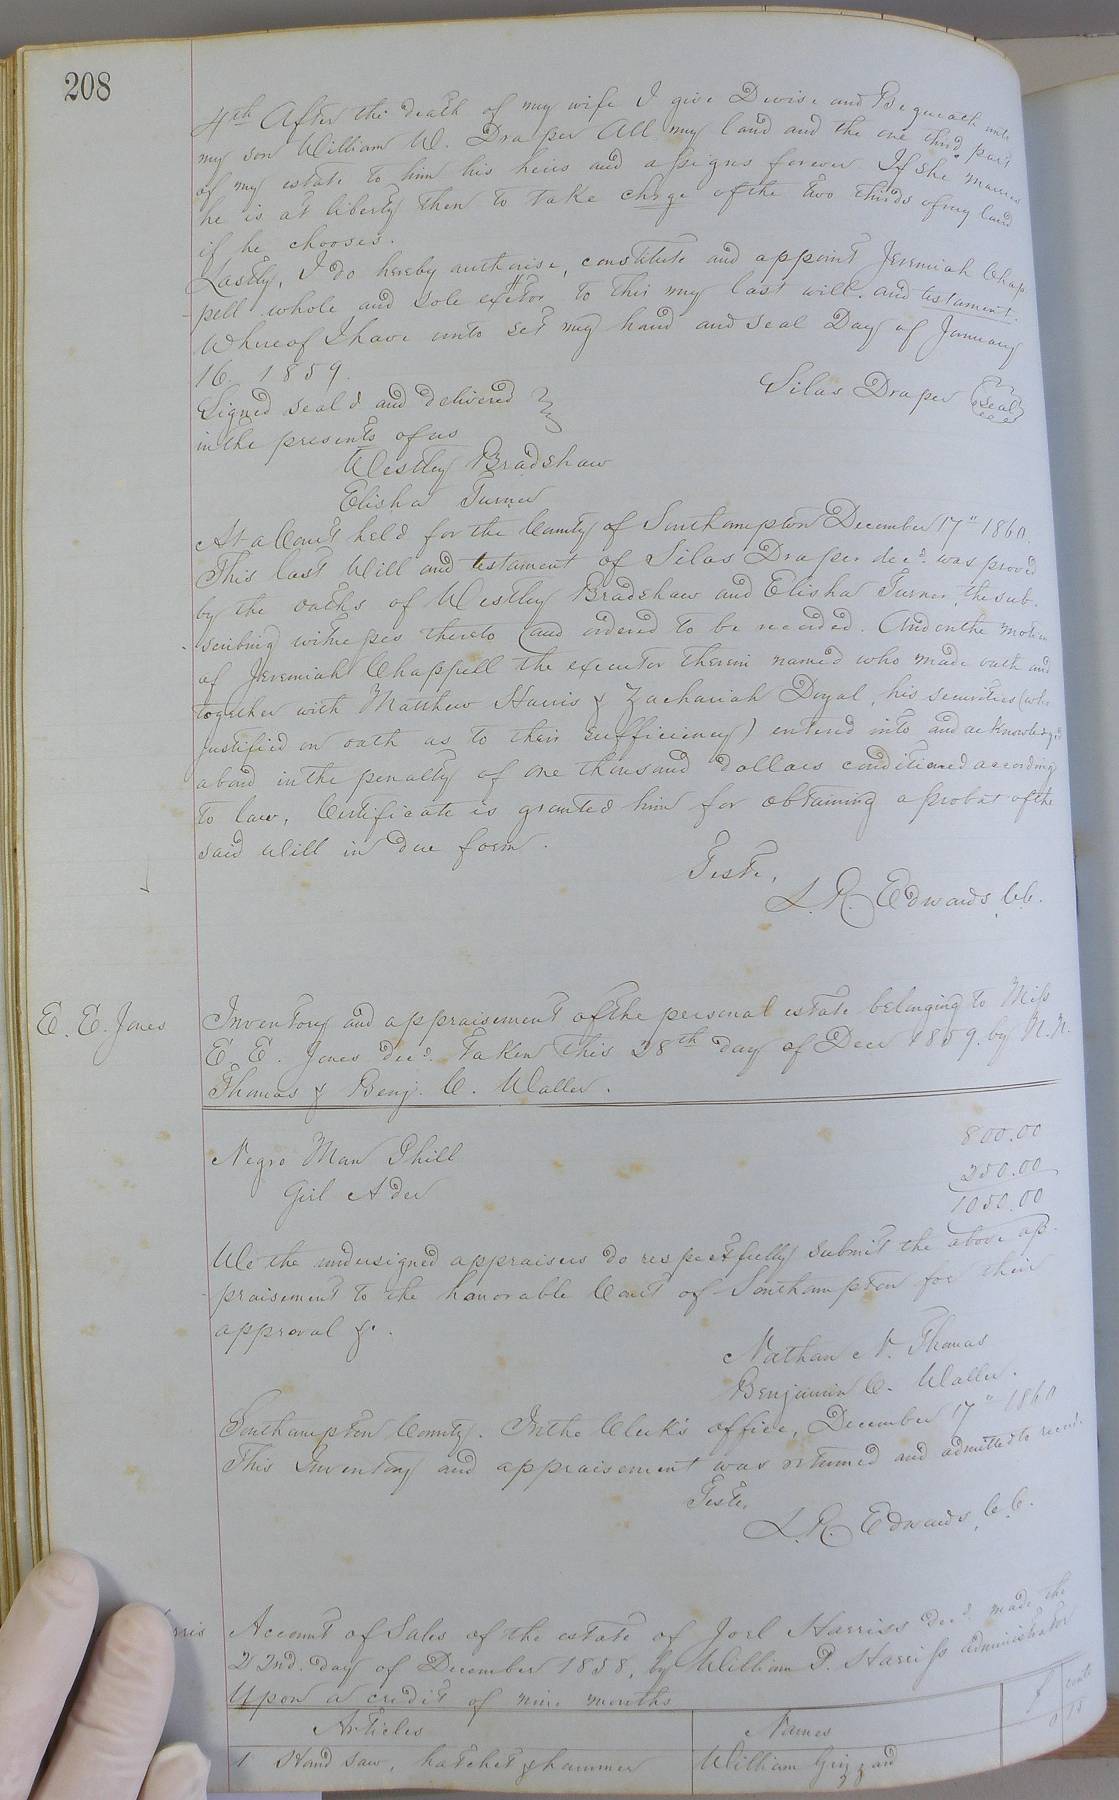 208
4th After the death of my wife I give Devise and Bequeath unto
my son William W. Draper All my land and the one third part
of my estate to him his heirs and assigns forever If she marries
he is at liberty then to take chrge of the two thirds of my land
if he chooses.
Lastly, I do hereby authorise, constitute and appoint Jeremiah Chap
pell whole and sole exetor to this my last will. and testament.
Whereof I have unto set my hand and seal Day of January
16 1859.
Silas Draper Seal
Signed seald and delivered
in the presents of us
Westley Bradshaw
Elisha Turner
At a Court held for the County of Southampton December 17" 1860.
This last Will and testament of Silas Draper decd. was proved
by the oaths of Westley Bradshaw and Elisha Turner, the sub-
scribing witnesses thereto and ordered to be recorded. And on the motion
of Jeremiah Chappell the executor therein named who made oath and
together with Matthew Harris & Zachariah Doyal, his securities (who
justified on oath as to their sufficiency) entered into and acknowledged
a bond in the penalty of one thousand dollars conditioned according
to law, Certificate is granted him for obtaining a probat of the
said will in due form.
Teste,
L. R. Edwards, C.C.
E. E. Jones
Inventory and appraisement of the personal estate belonging to Miss
E. E. Jones decd. Taken this 28th day of Decr 1859. by N. N.
Thomas & Benj. C. Waller.
Negro Man Phill 800.00
Girl Ader 250.00
1050.00
We the undersigned appraisers do respectfully submit the above ap-
praisement to the honorable Court of Southampton for their
approval &c.
Nathan N. Thomas
Benjamin C. Waller.
Southampton County. In the Clerk's office, December 17" 1860
This Inventory and appraisement was returned and admitted to record.
Teste,
L. R. Edwards, C.C.
rris
Account of Sales of the estate of Joel Harriss decd. made the
22nd. day of December 1858, by William P. Harriss administrator
Upon a credit of nine months
Articles Names $ cents
1 Hand saw, hatchet & hammer William Grizzard 0 15